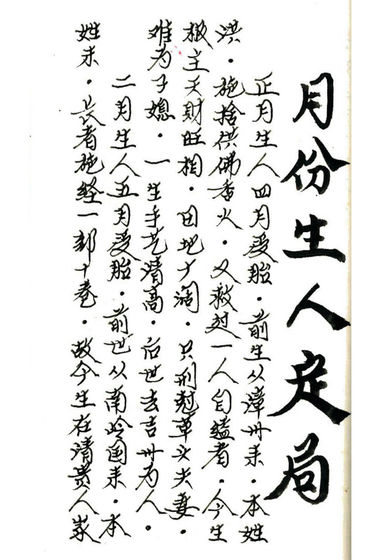 月份生人定局
正月生人四月受胎。前生从漳州来。本姓
洪。施捨供佛香火。又救过一人自缢者。今生
极主大财旺相。田地广阔。只刑克草头夫妻。
难为子媳。一生手艺清高。后世去吉州为人。
二月生人五月受胎。前世从南岭国来。本
姓朱。长者施经一部十卷。故今生在清贵人家